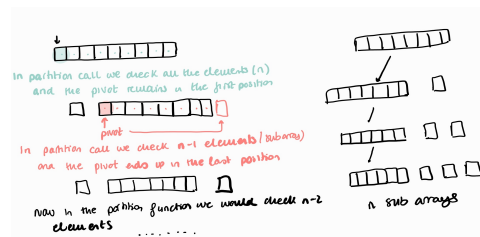 In partition call we check all the elements (n)
and the pivot remains in the first position
pivot
In partition call we check n-1 elements (subarray)
and the pivot ends up in the last position
now in the partition function we would check n-2
elements
n sub arrays